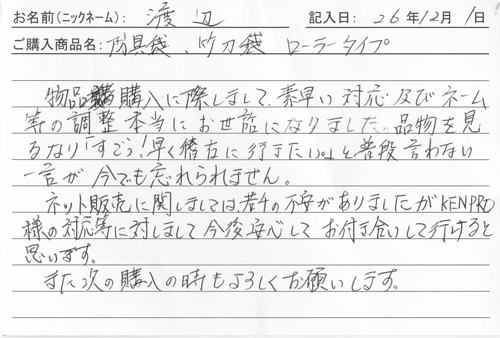 お名前(ニックネーム): 渡辺 記入日: 26年12月1日
ご購入商品名: 防具袋、竹刀袋 ローラータイプ
物品購入に際しまして、素早い対応及びネーム
等の調整本当にお世話になりました。品物を見
るなり「すごっ!早く稽古に行きたい。」と普段言わない
一言が今でも忘れられません。
ネット販売に関しましては若干の不安がありましたがKENPRO
様の対応等に対しまして今後安心してお付き合いして行けると
思います。
また次の購入の時もよろしくお願いします。